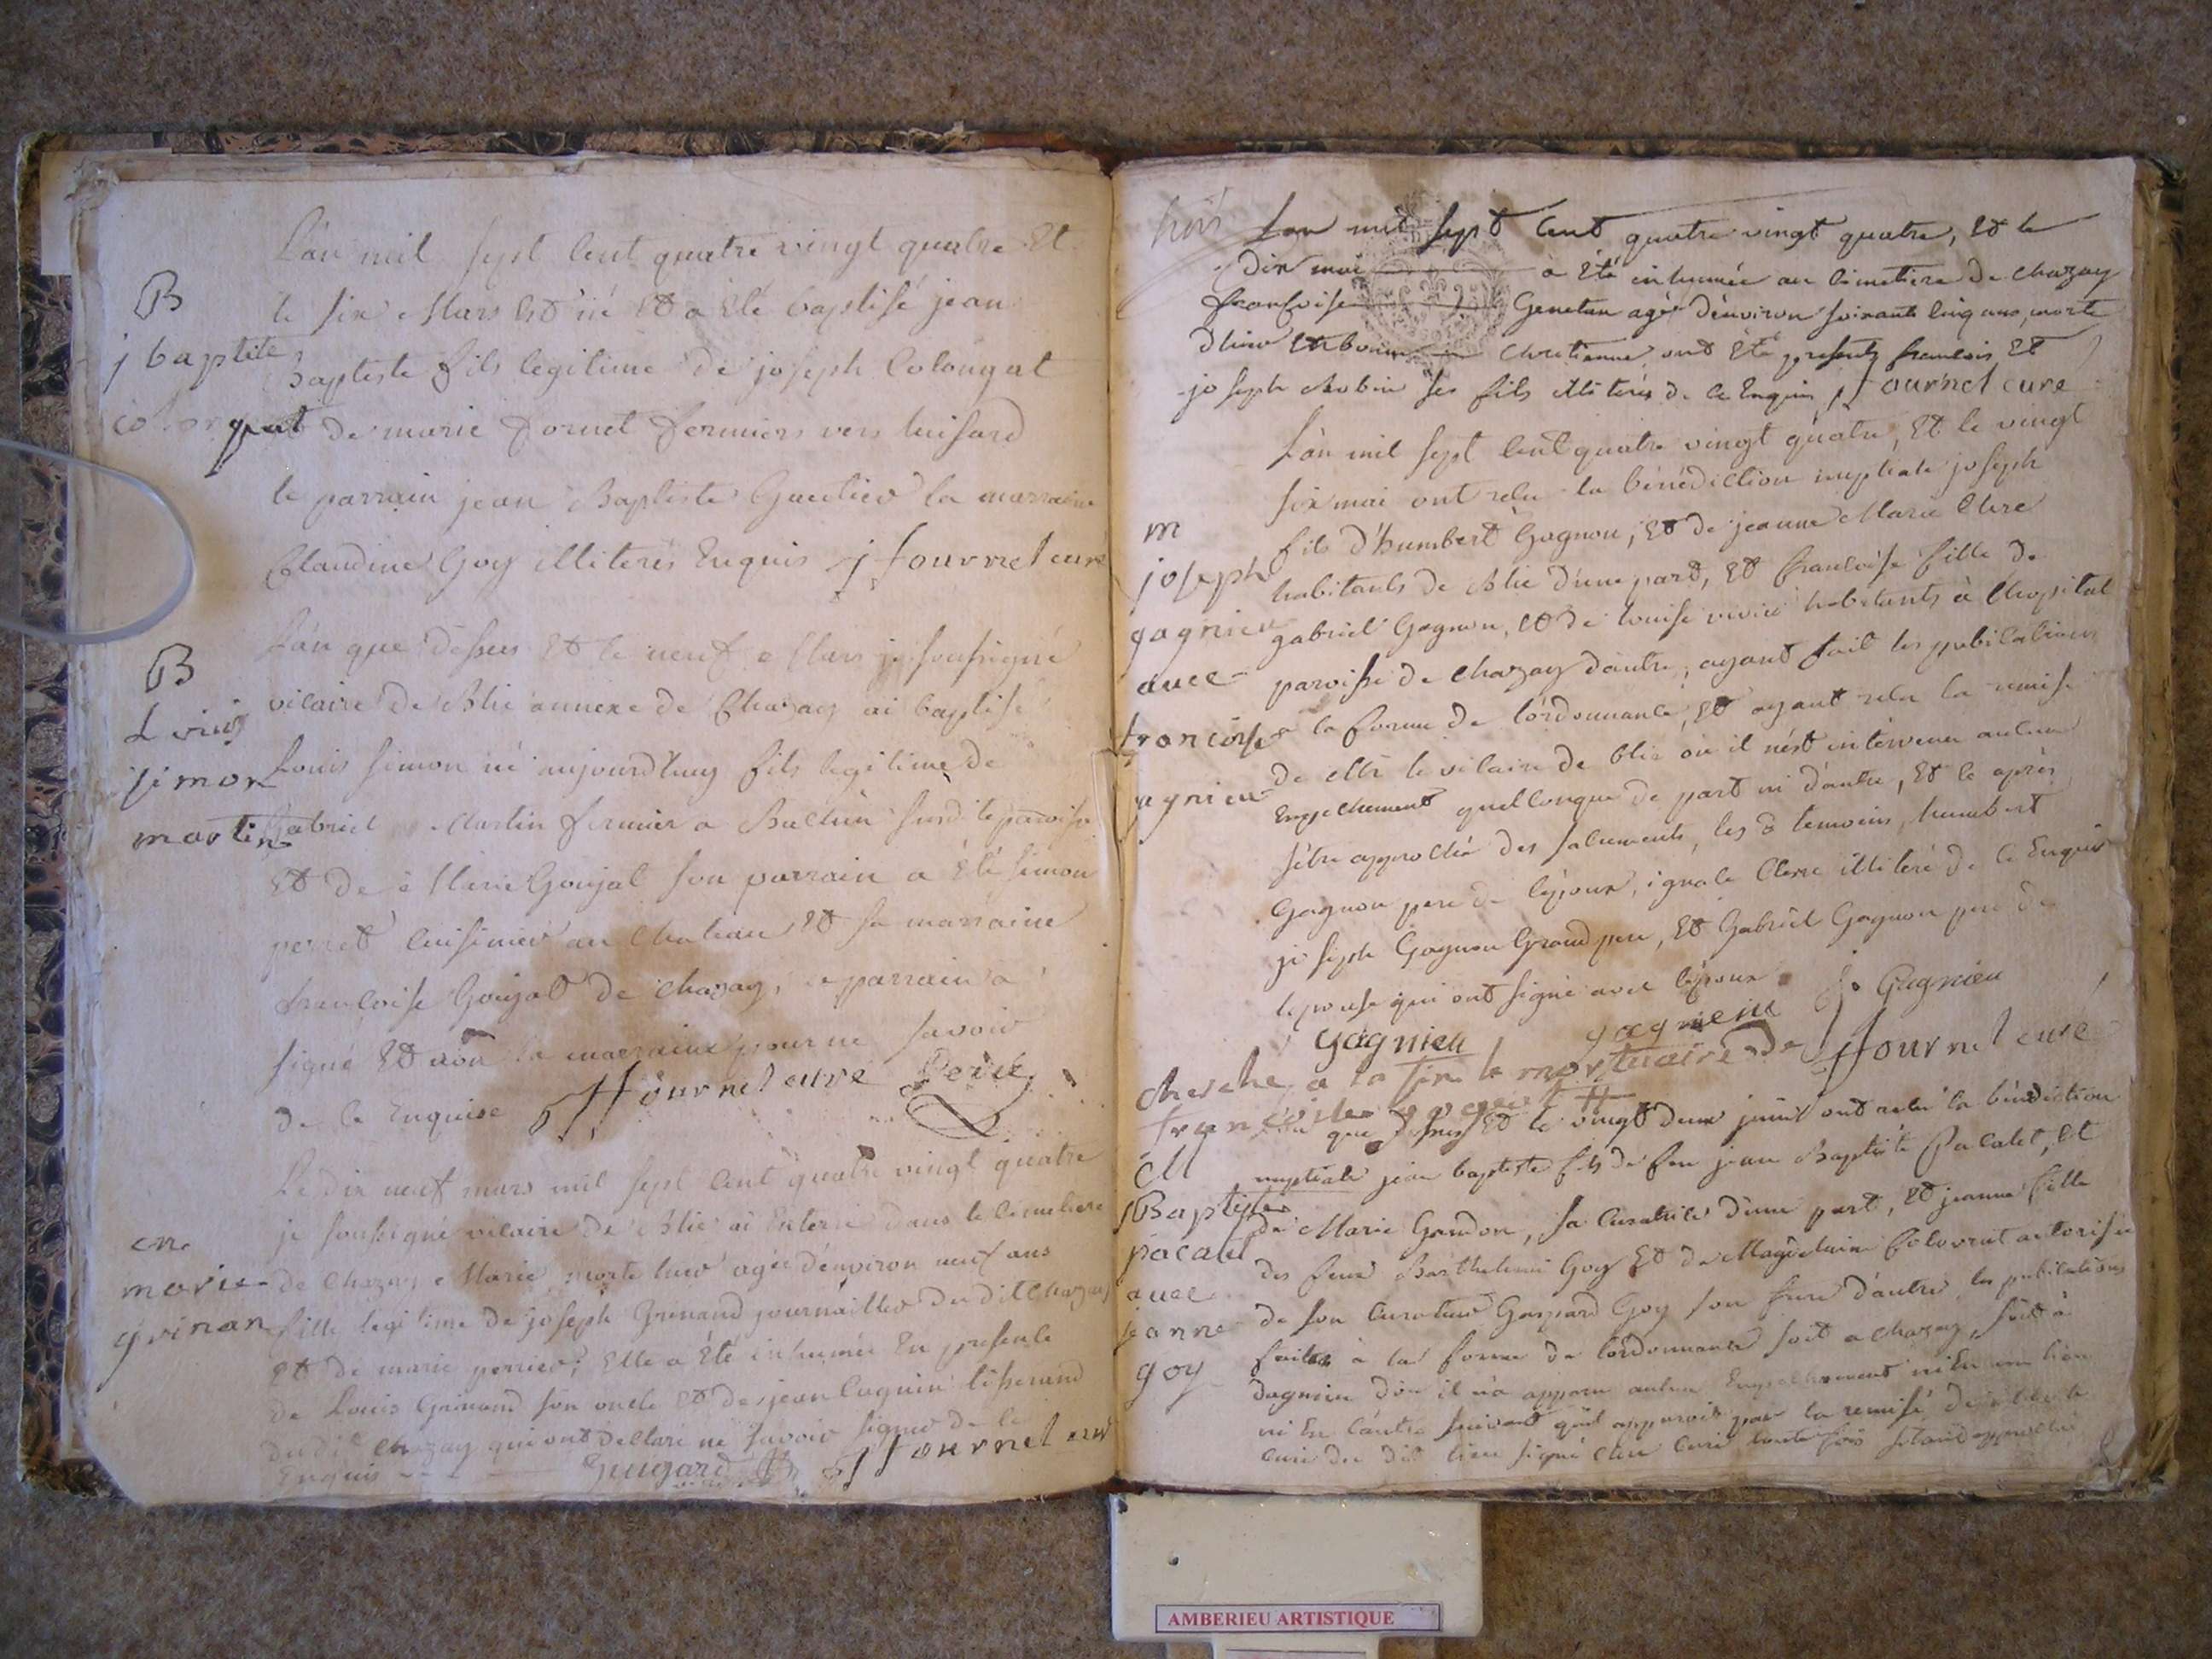 B
j baptite
colongat
L'an mil sept cent quatre vingt quatre Et
le six Mars Est né Et a Eté baptisé jean
Baptiste fils legitime de joseph Colongat
et de marie fornet fermiers vers luisard
le parrain jean Baptiste Gautier la marraine
Claudine Goy illiterés Enquis j fournet curé
B
Louis
simon
martin
L'an que dessus Et le neuf Mars je soussigné
vicaire de Blie annexe de Chazay ai baptisé
Louis simon né aujourd'huy fils legitime de
gabriel Martin fermier a sur dite paroisse
Et de Marie Goujat son parrain a Eté simon
perret cuisinier au Chateau Et sa marraine
francoise Goujat de chazay, le parrain a
signé Et non la marraine pour ne savoir
de ce Enquise j fournet curé
marie
grinan
Le dix neuf mars mil sept cent quatre vingt quatre
je soussigné vicaire de Blie ai Enterré dans le cimetiere
de Chazay Marie morte hier agée d'environ neuf ans
fille legitime de joseph Grinand journaillier du dit chazay
Et de marie perrier; Elle a Eté inhumée En presence
de Louis Grinand son oncle Et de jean Cagnin tisserand
du dit chazay qui ont declaré ne savoir signer de ce
Enquis j fournet curé
L'an mil sept cent quatre vingt quatre, Et le
dix mai a Eté inhumée au cimetiere de chazay
francoise agée d'environ soixante cinq ans, morte
chretienne ont Eté presents francois Et
joseph Robin ses fils illiterés de ce Enquis j fournet curé
m
joseph
gagnieu
avec
francoise
gagnieu
L'an mil sept cent quatre vingt quatre, Et le vingt
six mai ont recu la bénédiction nuptiale joseph
fils d'humbert Gagnon, Et de jeanne Marie Clere
habitants de Blie d'une part, Et francoise fille de
gabriel Gagnon, Et de louise habitants à l'hopital
paroisse de chazay d'autre, ayant fait les publications
a la forme de l'ordonnance, Et ayant recu la remise
de Mre le vicaire de blie où il n'est intervenu aucun
Empechement quelconque de part ni d'autre, Et le après
s'être approchés des sacrements, les temoins, humbert
Gagnon pere de l'epoux, ignace Clere illiteré de ce Enquis
joseph Gagnon Grand pere, Et Gabriel Gagnon pere de
l'epouse qui ont signé avec l'epoux J. Gagnieu
gagnieu gagnieu
j fournet curé
cherche a la fin le mortuaire de
M
jBaptiste
pacalet
avec
jeanne
goy
L'an que dessus Et le vingt deux juin ont recu la bénédiction
nuptiale jean baptiste fils de feu jean Baptiste Pacalet, Et
de Marie Gandon, sa curatrice d'une part, Et jeanne fille
des feux Barthelemi Goy Et de Magdelaine autorisée
de son curateur Gaspard Goy son frere d'autre les publications
faites à la forme de l'ordonnance soit a chazay, soit à
dagnieu d'où il n'a apparu aucun Empechement ni En un lieu
ni En l'autre suivant qu'il apparoit par la remise de
curé du dit lieu signé curé
AMBERIEU ARTISTIQUE